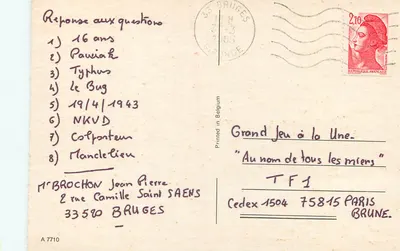 Réponse aux questions
1) 16 ans
2) Pawiak
3) Typhus
4) Le Bug
5) 19/4/1943
6) NKVD
7) Colporteur
8) Mandelieu
Mr BROCHON Jean Pierre
2 rue Camille Saint SAENS
33520 BRUGES
A 7710
Printed in Belgium
33 BRUGES
2,10
Grand Jeu à la Une
"Au nom de tous les miens"
TF1
Cedex 1504 75815 PARIS
BRUNE.